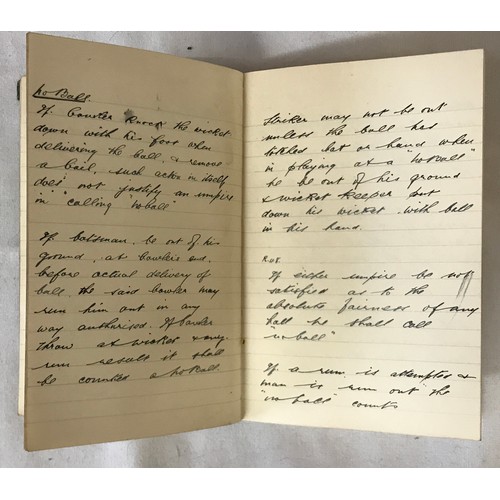 no Ball.
If bowler knock the wicket
down with his foot when
delivering the ball, & remove
a bail, such action in itself
does not justify an umpire
in calling "no ball"
If batsman be out of his
ground, at bowlers end,
before actual delivery of
ball, the said bowler may
run him out in any
way authorised. If bowler
throw at wicket & any
run result it shall
be counted a no Ball.
Striker may not be out
unless the ball has
touched bat or hand when
in playing at a no ball
he be out of his ground
& wicket keeper put
down his wicket with ball
in his hand.
If either umpire be not
satisfied as to the
absolute fairness of any
ball he shall call
"no ball"
If a run is attempted &
man is run out the
"no ball" counts